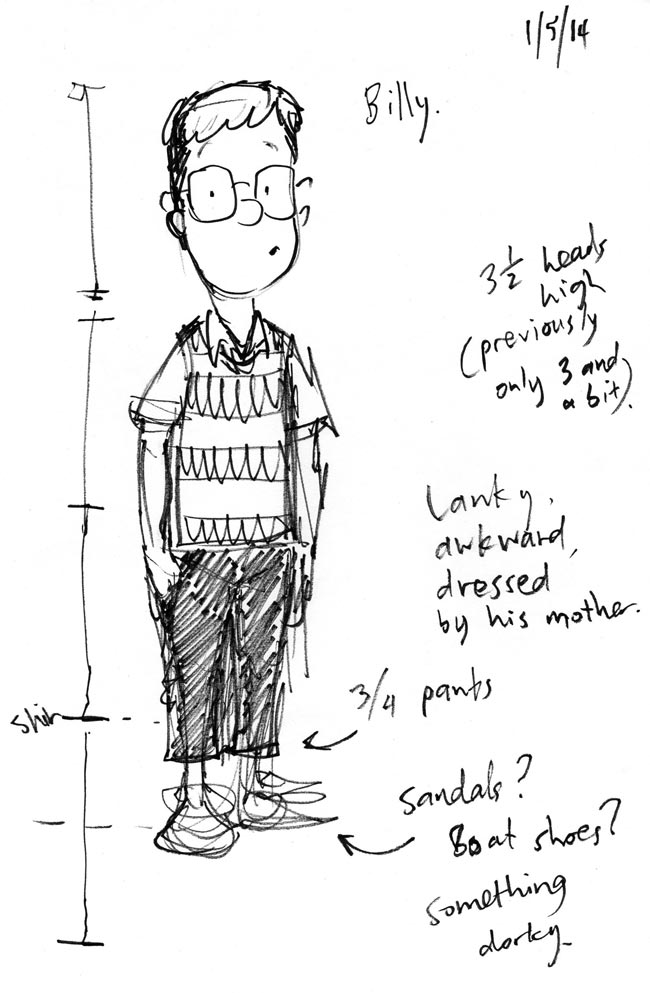 1/5/14
Billy.
3 1/2 heads
high
(previously
only 3 and
a bit).
Lanky,
awkward,
dressed
by his mother.
3/4 pants
shin
sandals?
Boat shoes?
something
dorky.